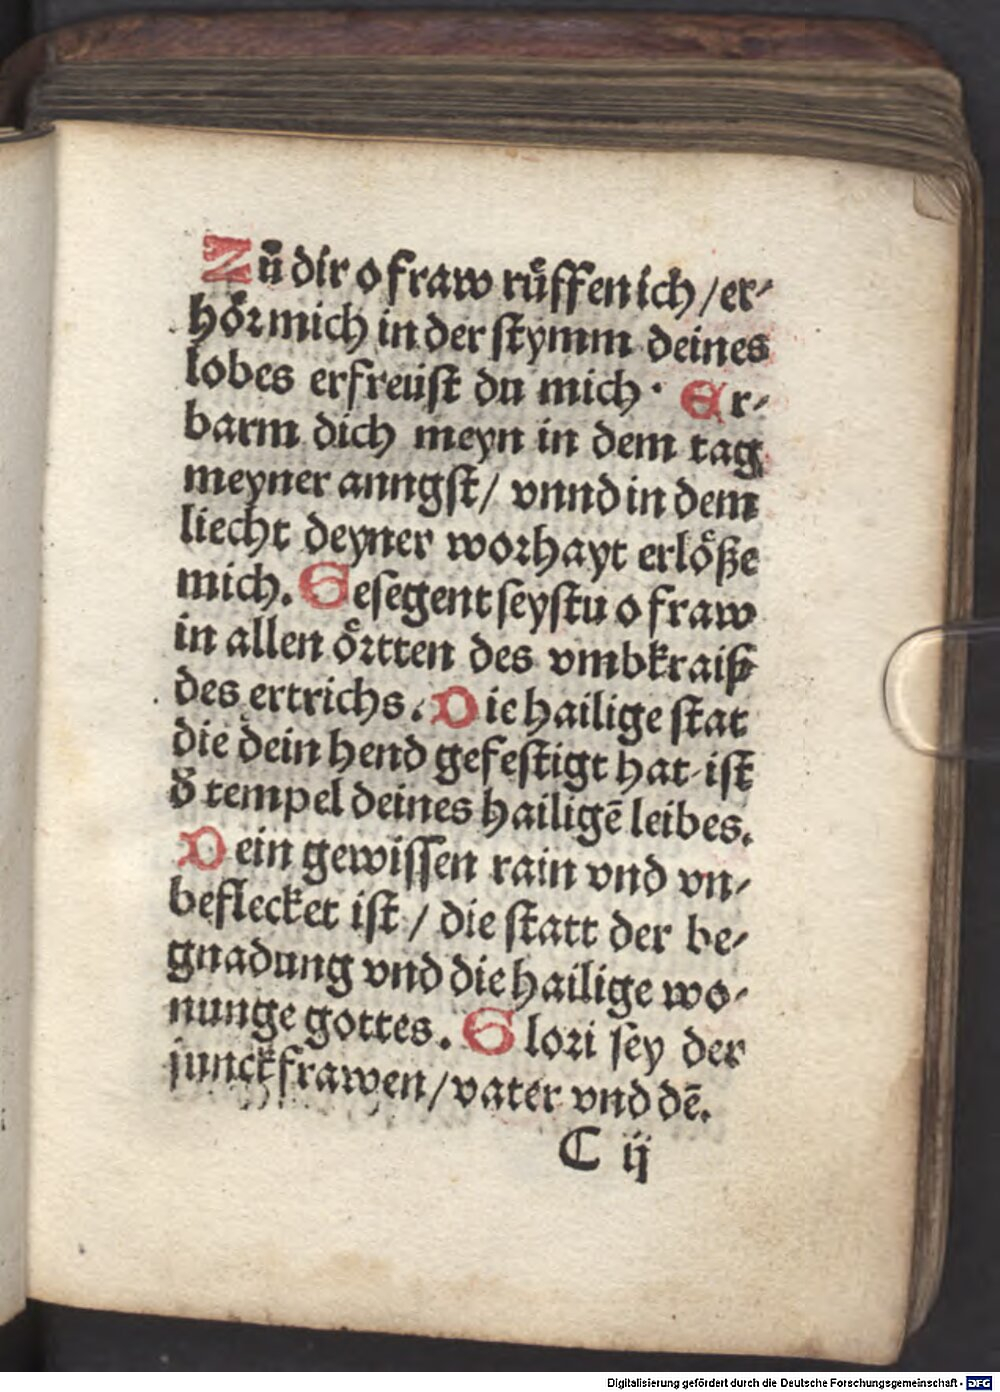 Zů dir o fraw růffen ich / er⸗
hoͤꝛ mich in der ſtymm deines
lobes erfreuſt du mich · Er⸗
barm dich meyn in dem tag
meyner anngſt / vnnd in dem
liecht deyner woꝛhayt erloͤße
mich. Geſegent ſeyſtu o fraw
in allen oͤꝛtten des vmbkraiß
des ertrichs. Die hailige ſtat
die dein hend gefeſtigt hat iſt
d̕ tempel deines hailigē leibes.
Dein gewiſſen rain vnd vn⸗
beflecket iſt / die ſtatt der be⸗
gnadung vnd die hailige wo⸗
nunge gottes. Gloꝛi ſey der
junckfrawen / vater vnd dē.
C ij
Digitalisierung gefördert durch die Deutsche Forschungsgemeinschaft - DFG